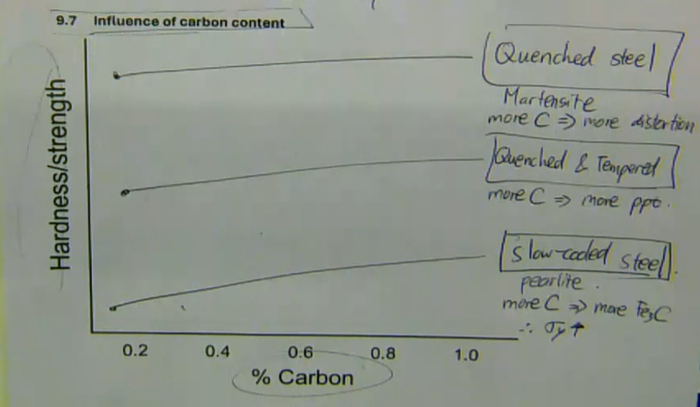 9.7 Influence of carbon content
Hardness/strength
Quenched steel
Martensite
more C => more distortion
Quenched & Tempered
more C => more ppt.
Slow-cooled steel
pearlite.
more C => more Fe3C
∴ σy ↑
0.2 0.4 0.6 0.8 1.0
% Carbon